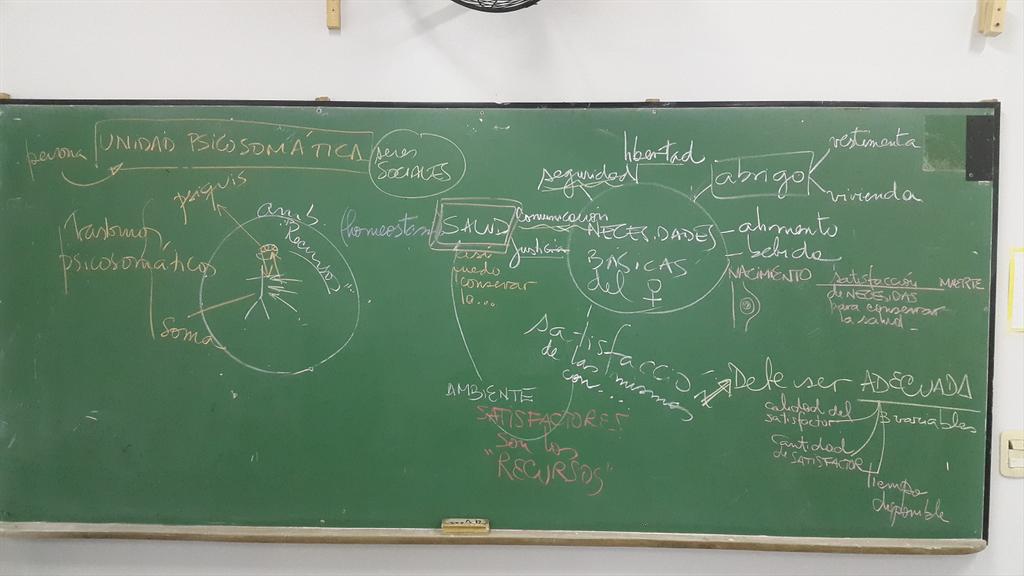 persona
UNIDAD PSICOSOMÁTICA
seres
SOCIALES
psiquis
trastornos
psicosomáticos
Soma
amb
"Recursos"
(homeostasis)
SALUD
puedo
conservar
la...
seguridad
libertad
comunicación
justicia
NECESIDADES
BÁSICAS
del ♀
abrigo
vestimenta
vivienda
alimento
bebida
NACIMIENTO
satisfacción
de NECESIDAS
para conservar
la salud
Satisfacció
de las mismas
con...
AMBIENTE
SATISFACTORES
son los
"RECURSOS"
Debe ser ADECUADA
3 variables
calidad del
satisfactor
Cantidad
de SATISFACTOR
Tiempo
disponible